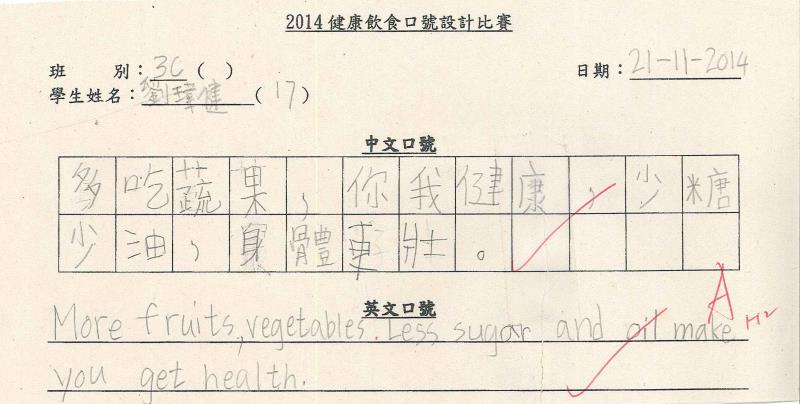 2014健康飲食口號設計比賽
班 別：3C ( ) 日期：21-11-2014
學生姓名：劉瑋健 (17)
中文口號
多吃蔬果，你我健康，少糖
少油，身體更壯。
A
英文口號
More fruits, vegetables. Less sugar and oil make
you get health.